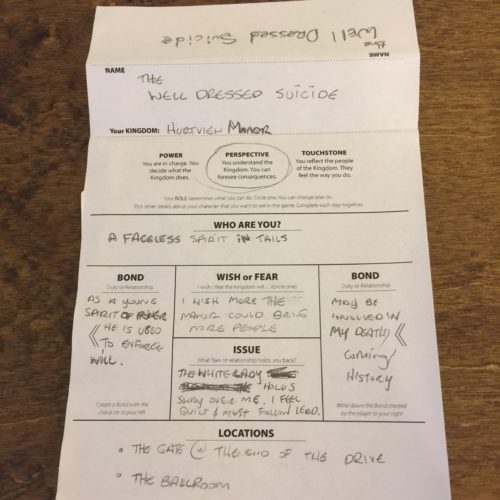 The WELL Dressed Suicide
NAME
NAME
THE
WELL DRESSED SUICIDE
Your KINGDOM: HURTVIEW MANOR
POWER
You are in charge. You
decide what the
Kingdom does.
PERSPECTIVE
You understand the
Kingdom. You can
foresee consequences.
TOUCHSTONE
You reflect the people
of the Kingdom. They
feel the way you do.
Your ROLE determines what you can do. Circle one. You can change later on.
Pick other details about your character that you want to see in the game. Complete each step together.
WHO ARE YOU?
A FACELESS SPIRIT IN TAILS
BOND
Duty or Relationship
AS A YOUNG
SPIRIT OF
HE IS USED
TO ENFORCE
WILL.
Create a Bond with the
character to your left
WISH or FEAR
I wish / fear the Kingdom will ... (circle one)
I WISH MORE THE
MANOR COULD BRING
MORE PEOPLE
ISSUE
What flaw or relationship holds you back?
THE WHITE LADY
HOLDS
SWAY OVER ME. I FEEL
GUILT & MUST FOLLOW LEAD.
BOND
Duty or Relationship
MAY BE
INVOLVED IN
MY DEATH
COMING/
HISTORY
Write down the Bond created
by the player to your right
LOCATIONS
• THE GATE @ THE END OF THE DRIVE
• THE BALLROOM